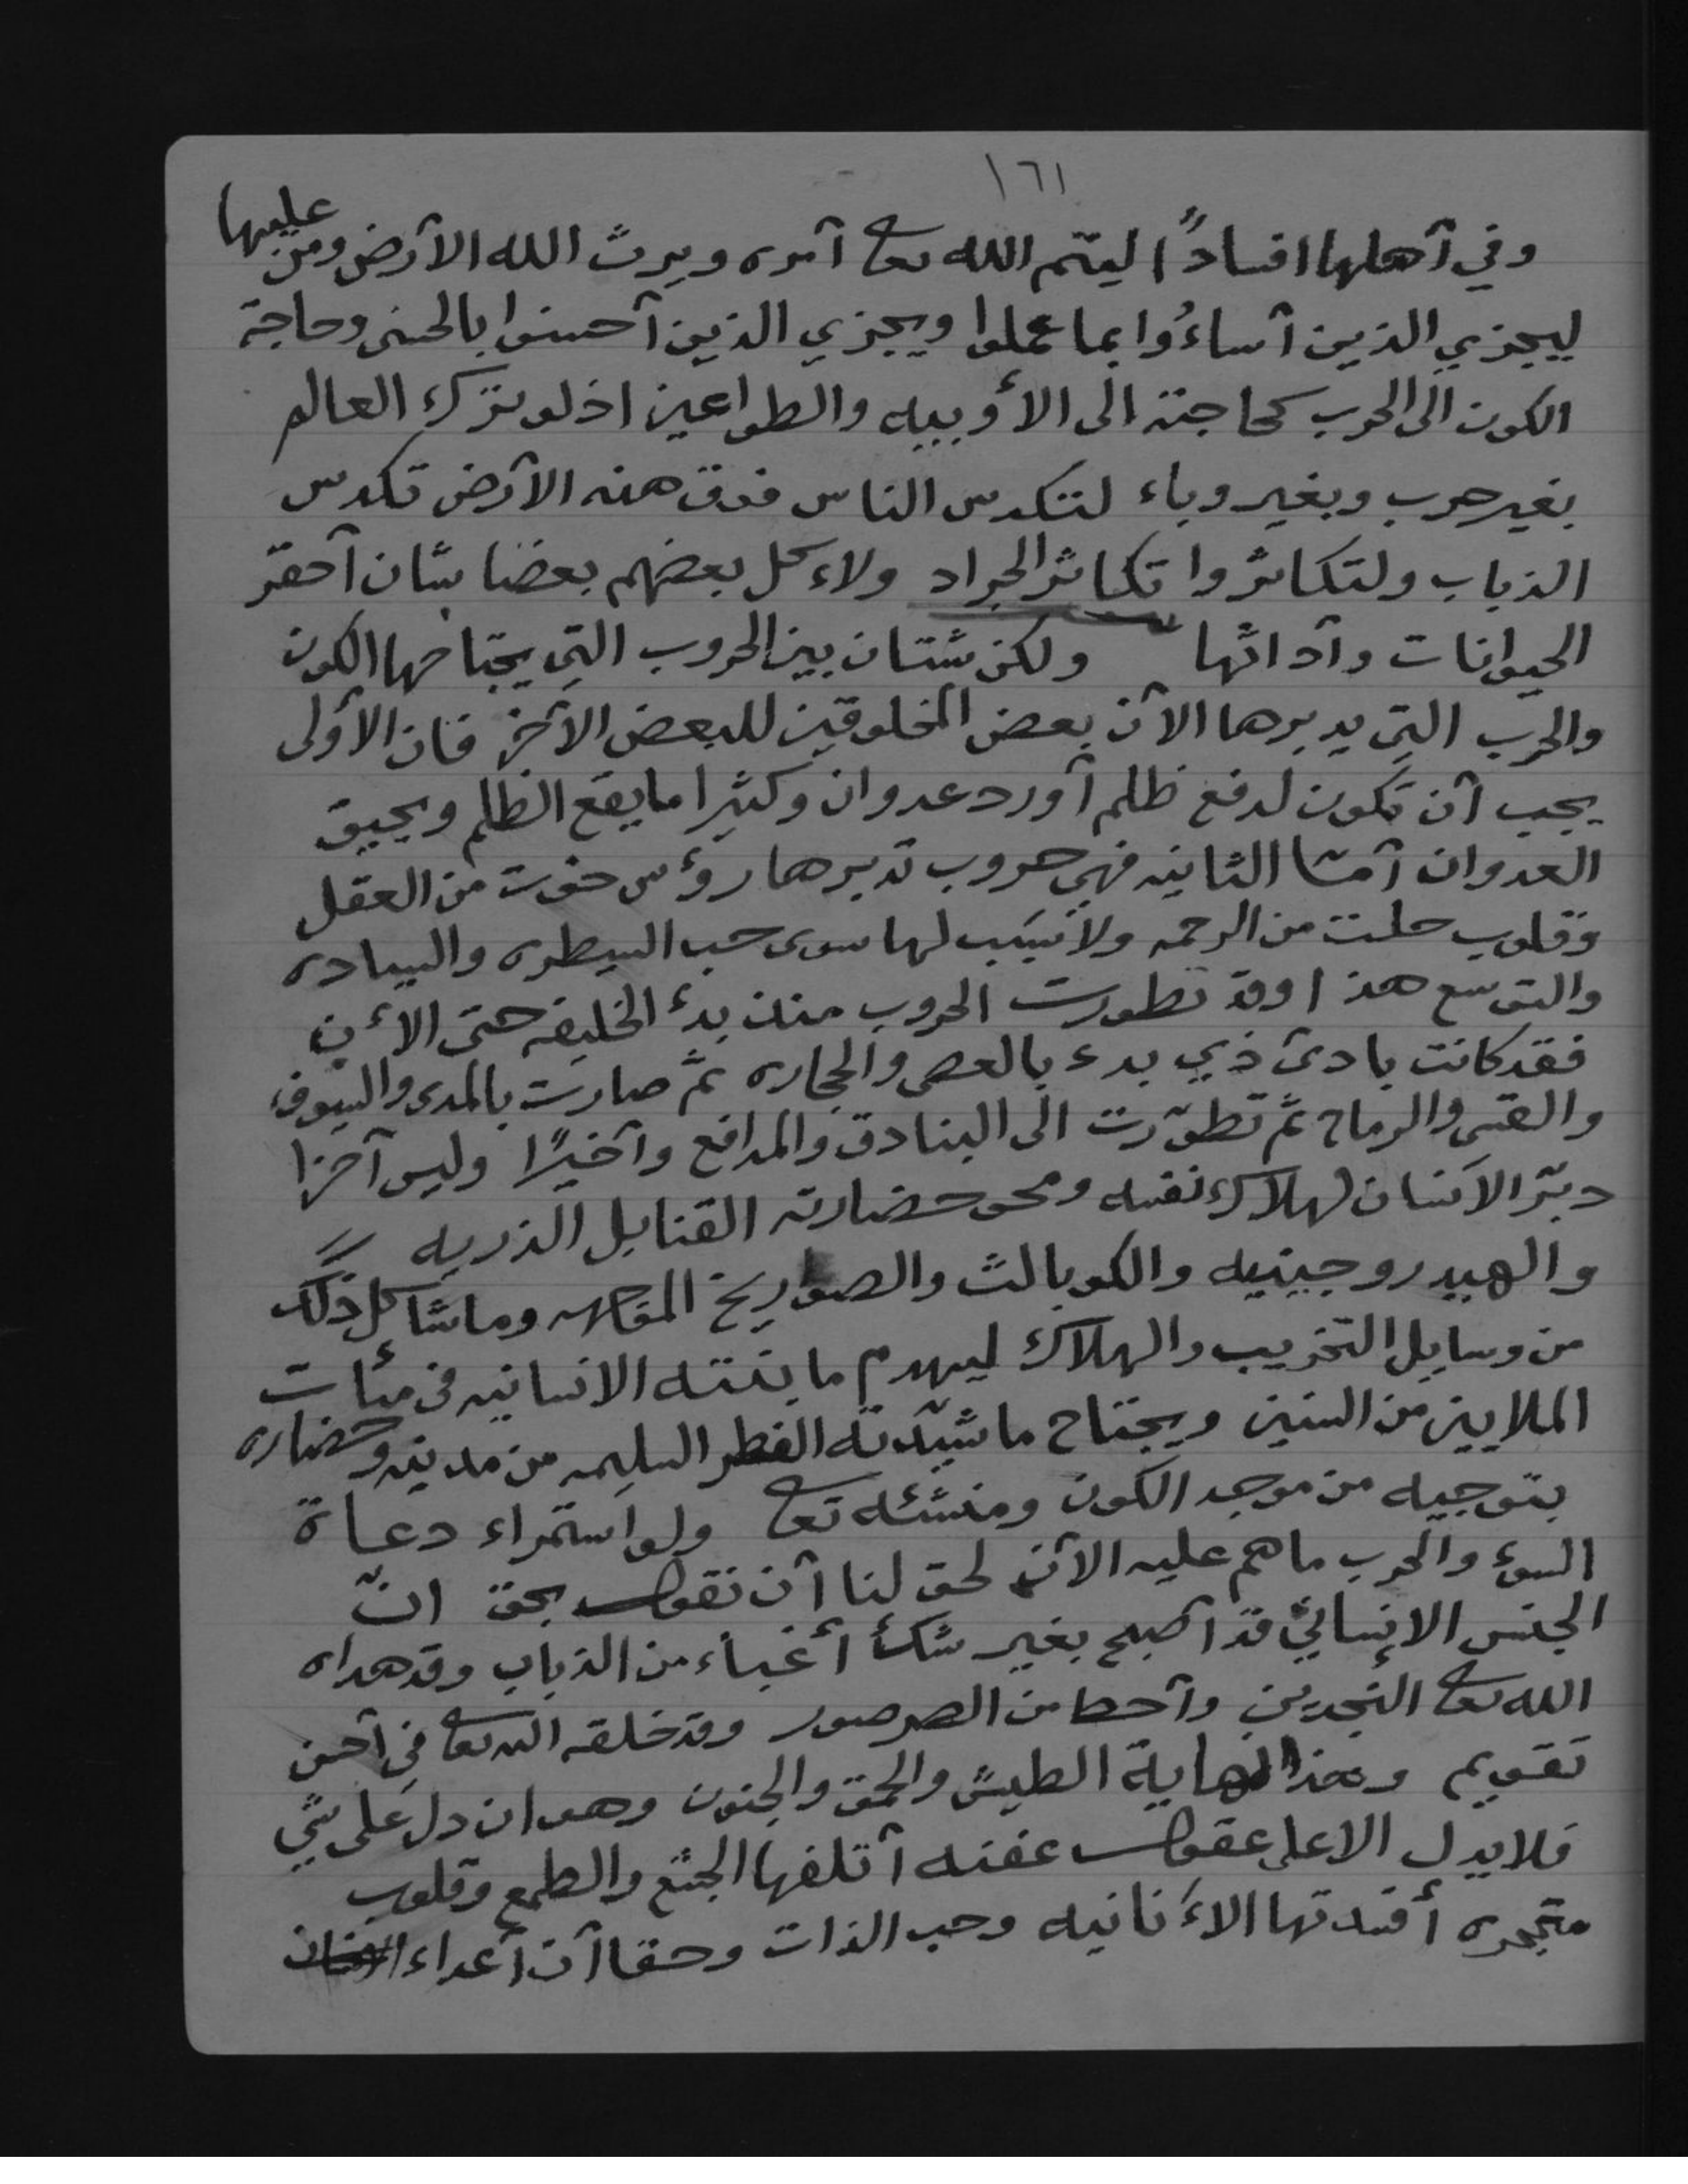 ١٦١
وفي آهلها افساداً ليتم الله تعا آمره ويرث الله الآرض ومن عليها
ليجزي الذين آساءُوا بما عملوا ويجزي الذين آحسنوا بالحسنى وحاجة
الكون الى الحرب كحاجته الى الأوبيه والطواعين اذ لو ترك العالم
بغير حرب وبغير وباء لتكدس الناس فوق هذه الآرض تكدس
الذباب ولتكاثروا تكاثر الجراد ولاءكل بعضهم بعضا شان آحقر
الحيوانات وآدائها ولكن شتان بين الحروب التي يحتاجها الكون
والحرب التي يديرها الآن بعض المخلوقين للبعض الآخر فان الآولى
يجب آن تكون لدفع ظلم آورد عدوان وكثيرا ما يقع الظلم ويحيق
العدوان آمتا الثانيه فهي حروب تديرها رؤس خوت من العقل
وقلوب خلت من الرحمه ولا سبب لها سوى حب السيطره والسياده
والتوسع هذا وقد تطورت الحروب منذ بدء الخليقه حتى الآن
فقد كانت بادئ ذي بدء بالعصى والحجاره ثم صارت بالمدى والسيوف
والقسى والرماح ثم تطوّرت الى البنادق والمدافع وآخيرًا وليس آخرا
دبّر الآنسان لهلاك نفسه ومحو حضارته القنابل الذريه
والهيدروجينيه والكوبالت والصواريخ الموجهه وما شاكل ذلك
من وسايل التخريب والهلاك ليهدم ما بنته الانسانيه فى مئآت
الملايين من السنين ويجتاح ما شيّدته الفطر السليمه من مدنيه وحضاره
بتوجيه من موجد الكون ومنشئه تعا ولو استمراء دعاة
السوء والحرب ما هم عليه الآن لحق لنا آن نقول بحق انّ
الجنس الإنساني قد آصبح بغير شك أغباء من الذباب وقد هداه
الله تعا النجدين وآحط من الصرصور وقد خلقه الله تعا في آحسن
تقويم وهذا نهاية الطيش والحمق والجنون وهو ان دل على شي
فلا يدل الا على عقول عفنه آتلفها الجشع والطمع وقلوب
متحجره أفسدتها الآنانيه وحب الذات وحقا آن آعداء